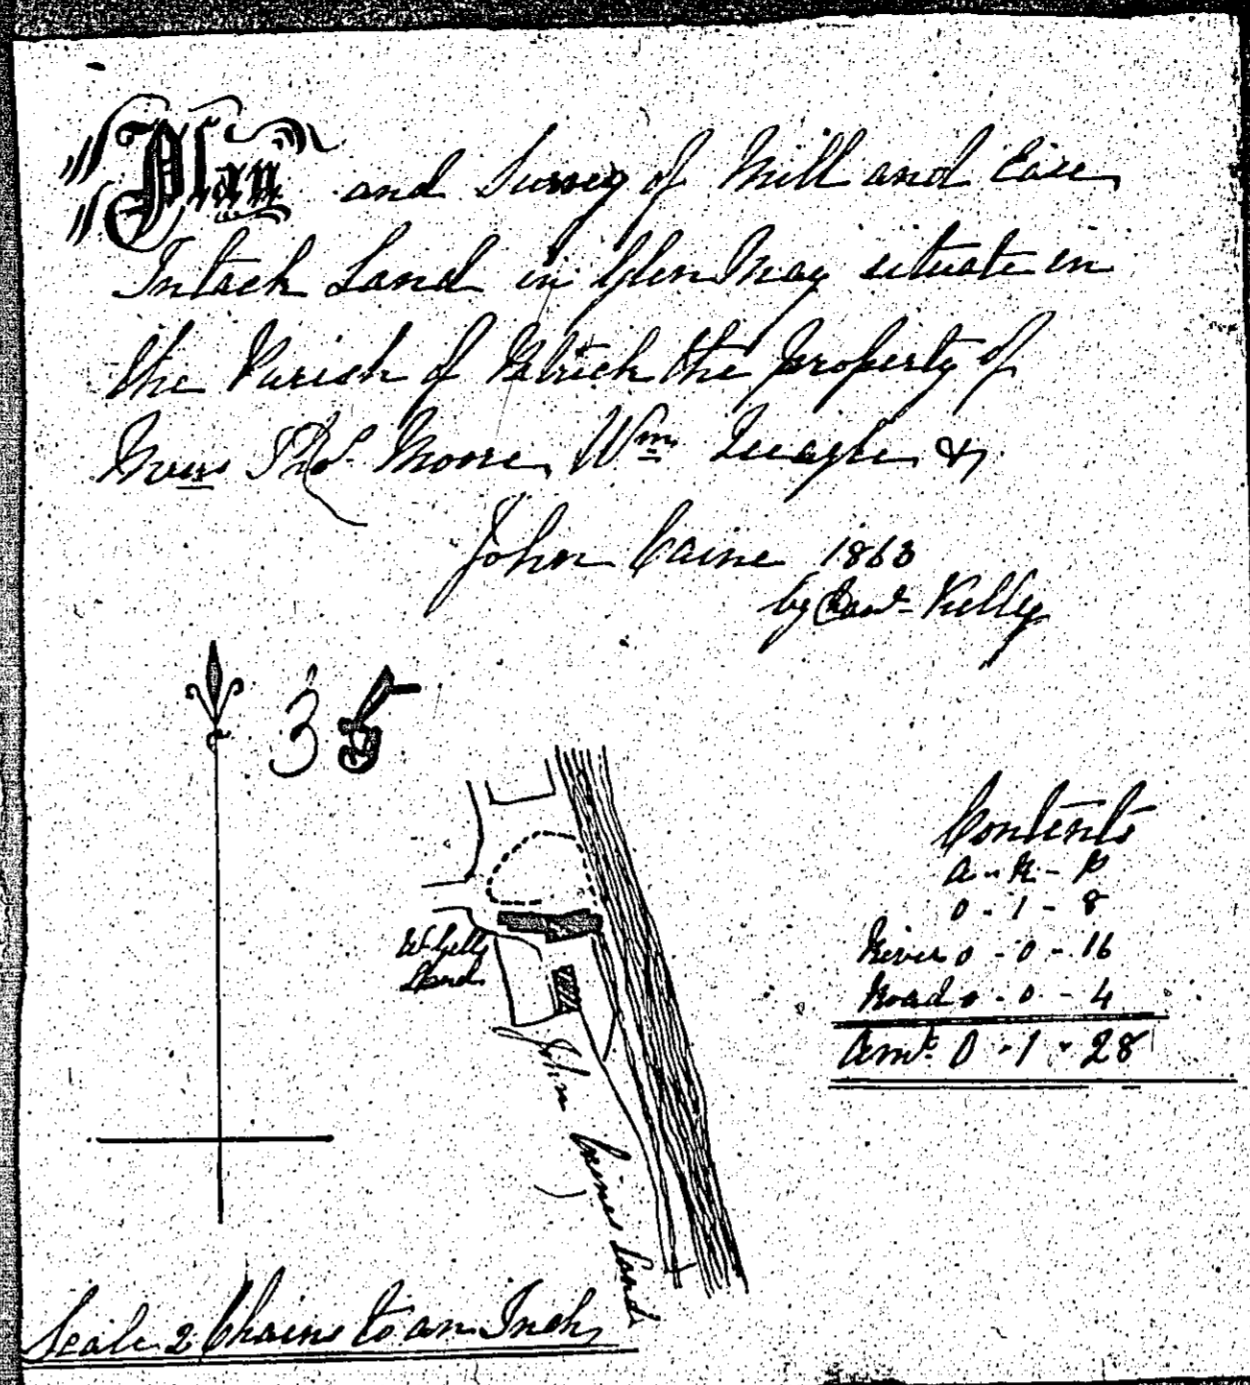 Plan and Survey of Mill and
Intack Land in Glen May situate in
the Parish of Patrick the property of
Messrs Thos. Moore, Wm Quayle &
John Caine 1863
by Kelly
35
Contents
A - R - P
0 - 1 - 8
River 0 - 0 - 16
Road 0 - 0 - 4
Amt. 0 - 1 - 28
Land
John Caines Land
Scale 2 Chains to an Inch